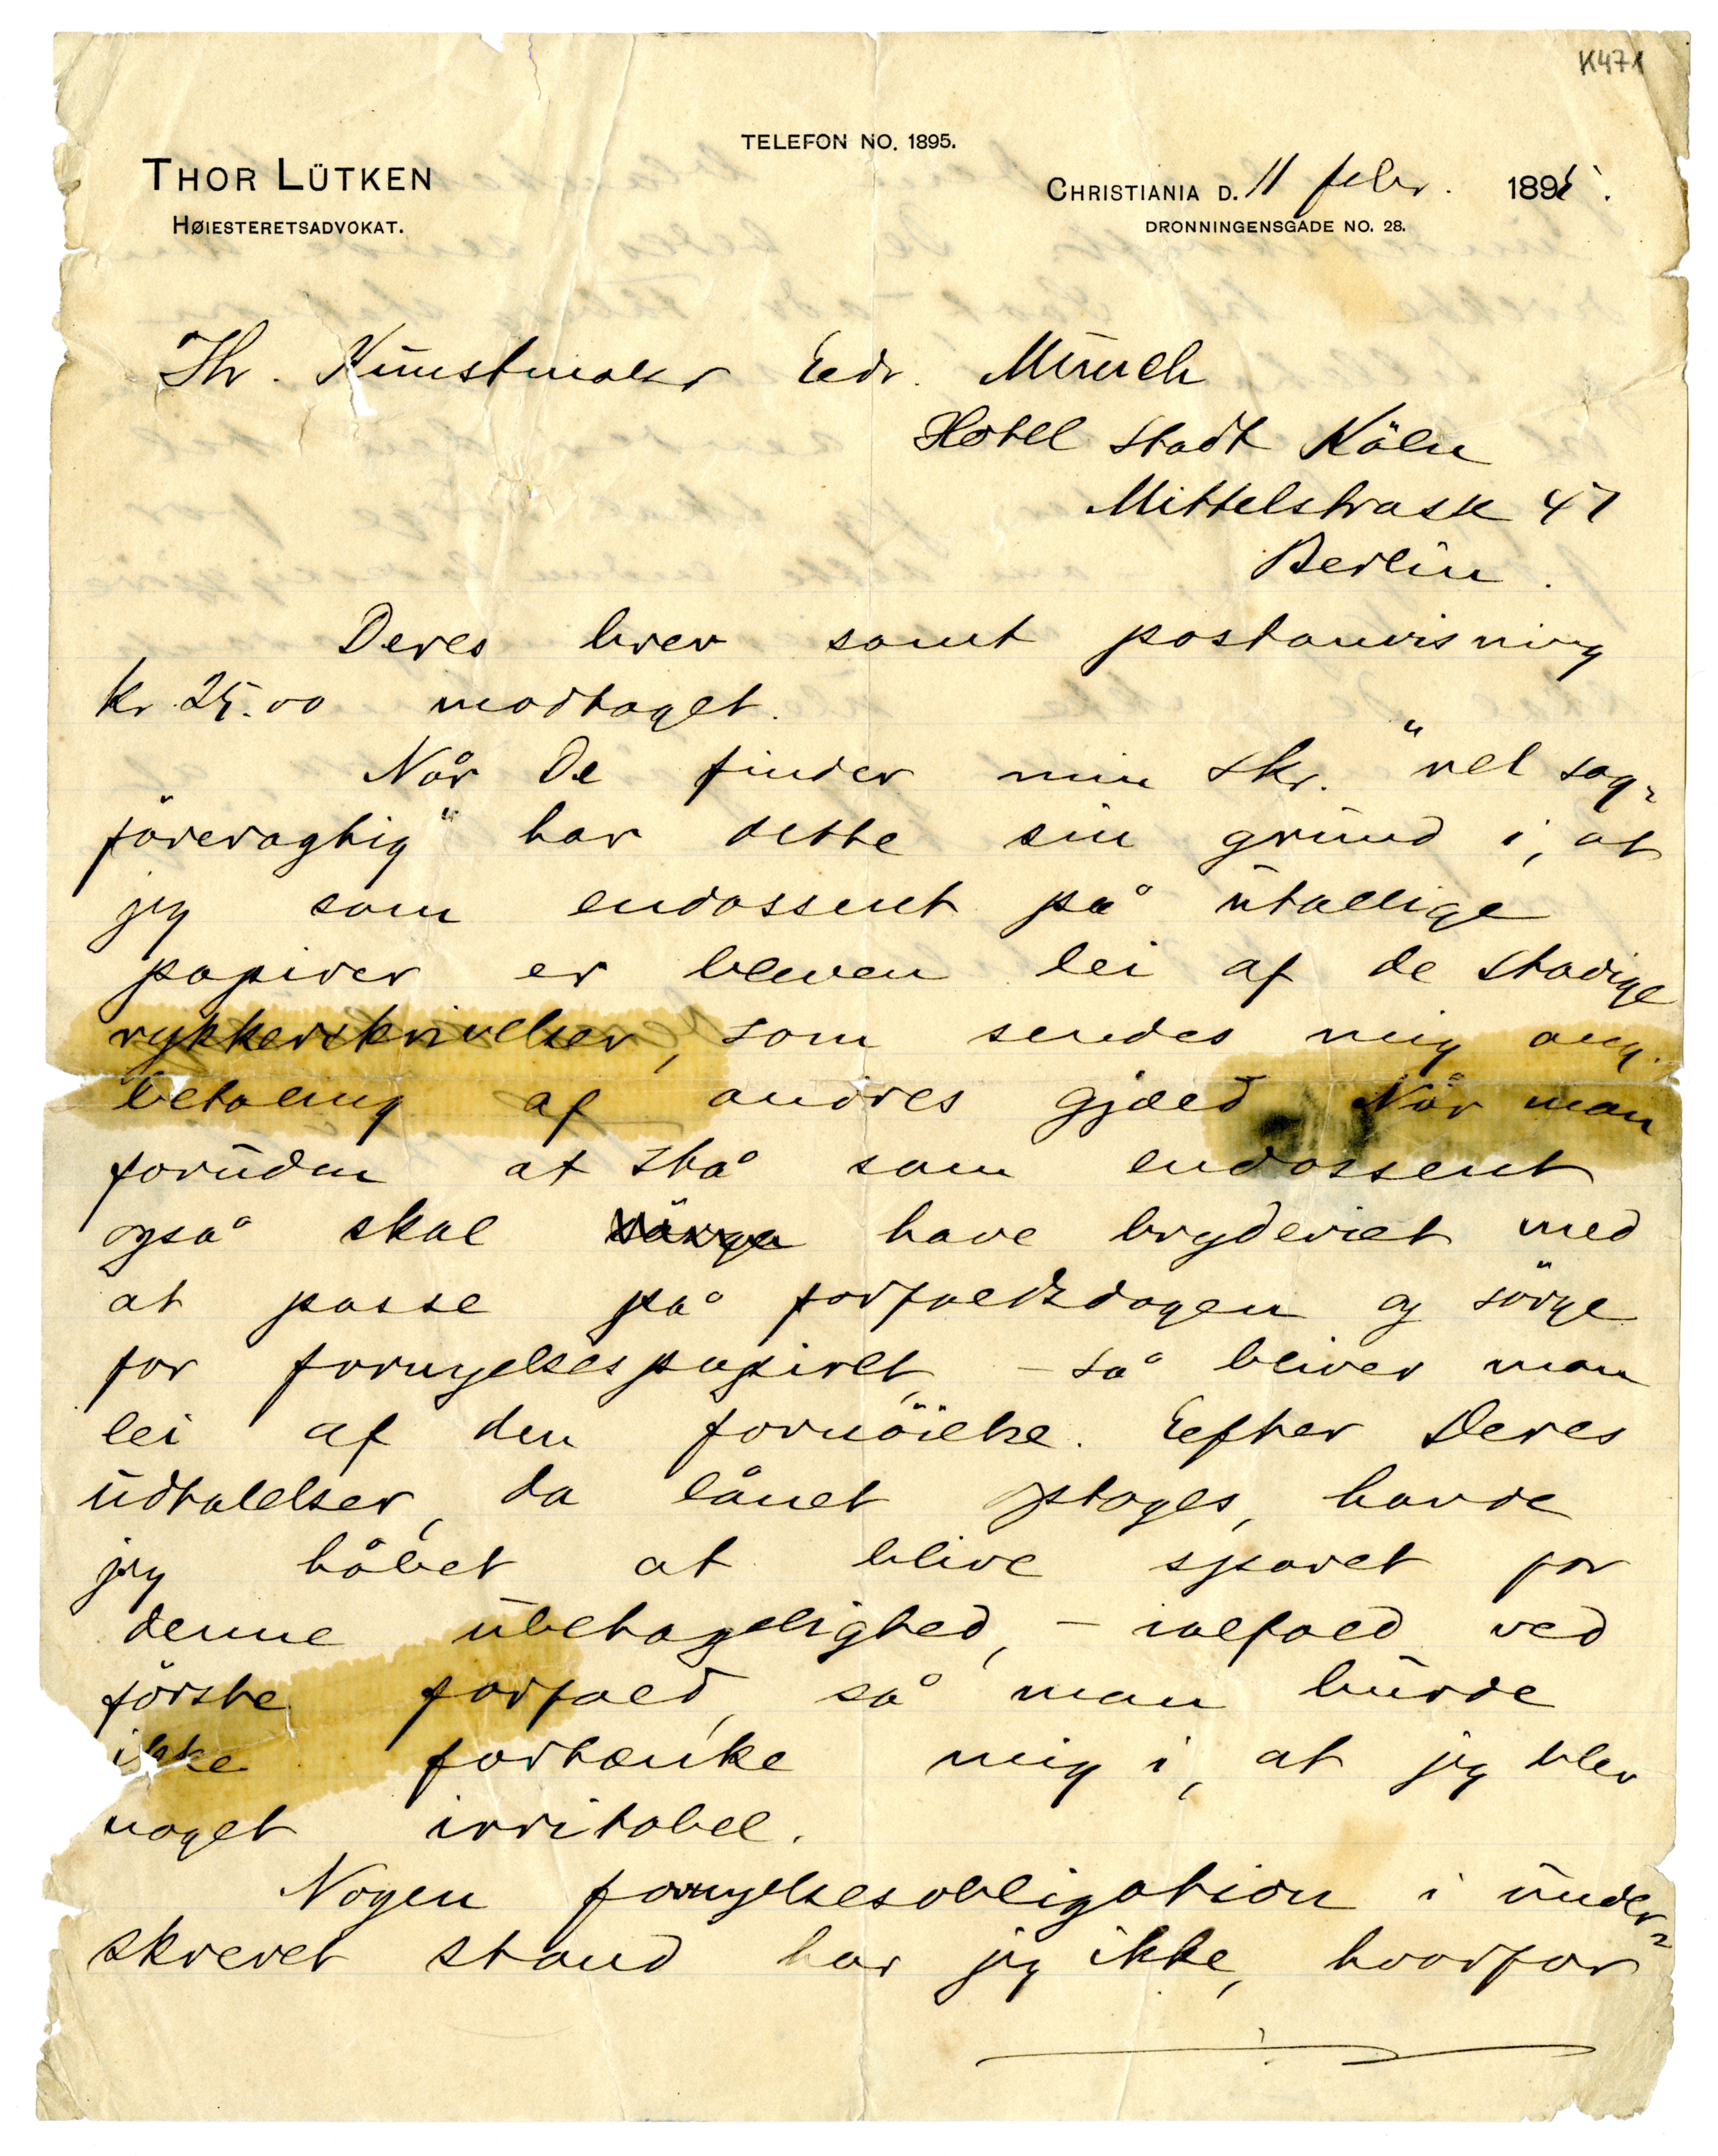 K471
TELEFON NO. 1895.
THOR LÜTKEN
HØIESTERETSADVOKAT.
CHRISTIANIA D. 11 febr. 1895.
DRONNINGENSGADE NO. 28.
Hr. Kunstmaler Edv. Munch
Hotel Stadt Köln
Mittelstrasse 47
Berlin.
Deres brev samt postanvisning
kr. 25.00 modtaget.
Når De finder min skr. "vel sag-
föreragtig" har dette sin grund i, at
jeg som endossent på utallige
papirer er bleven lei af de stadige
rykkerskrivelser, som sendes mig ang.
betaling af andres gjæld. Når man
foruden at stå som endossent
også skal have bryderiet med
at passe på forfaldsdagen og sörge
for fornyelsespapiret, – så bliver man
lei af den fornöielse. Efter Deres
udtalelser, da lånet optoges, havde
jeg håbet at blive sparet for
denne ubehagelighed, – ialfald ved
förste forfald, så man burde
ikke fortænke mig i, at jeg blev
noget irritabel.
Nogen fornyelsesobligation i under-
skrevet stand har jeg ikke, hvorfor